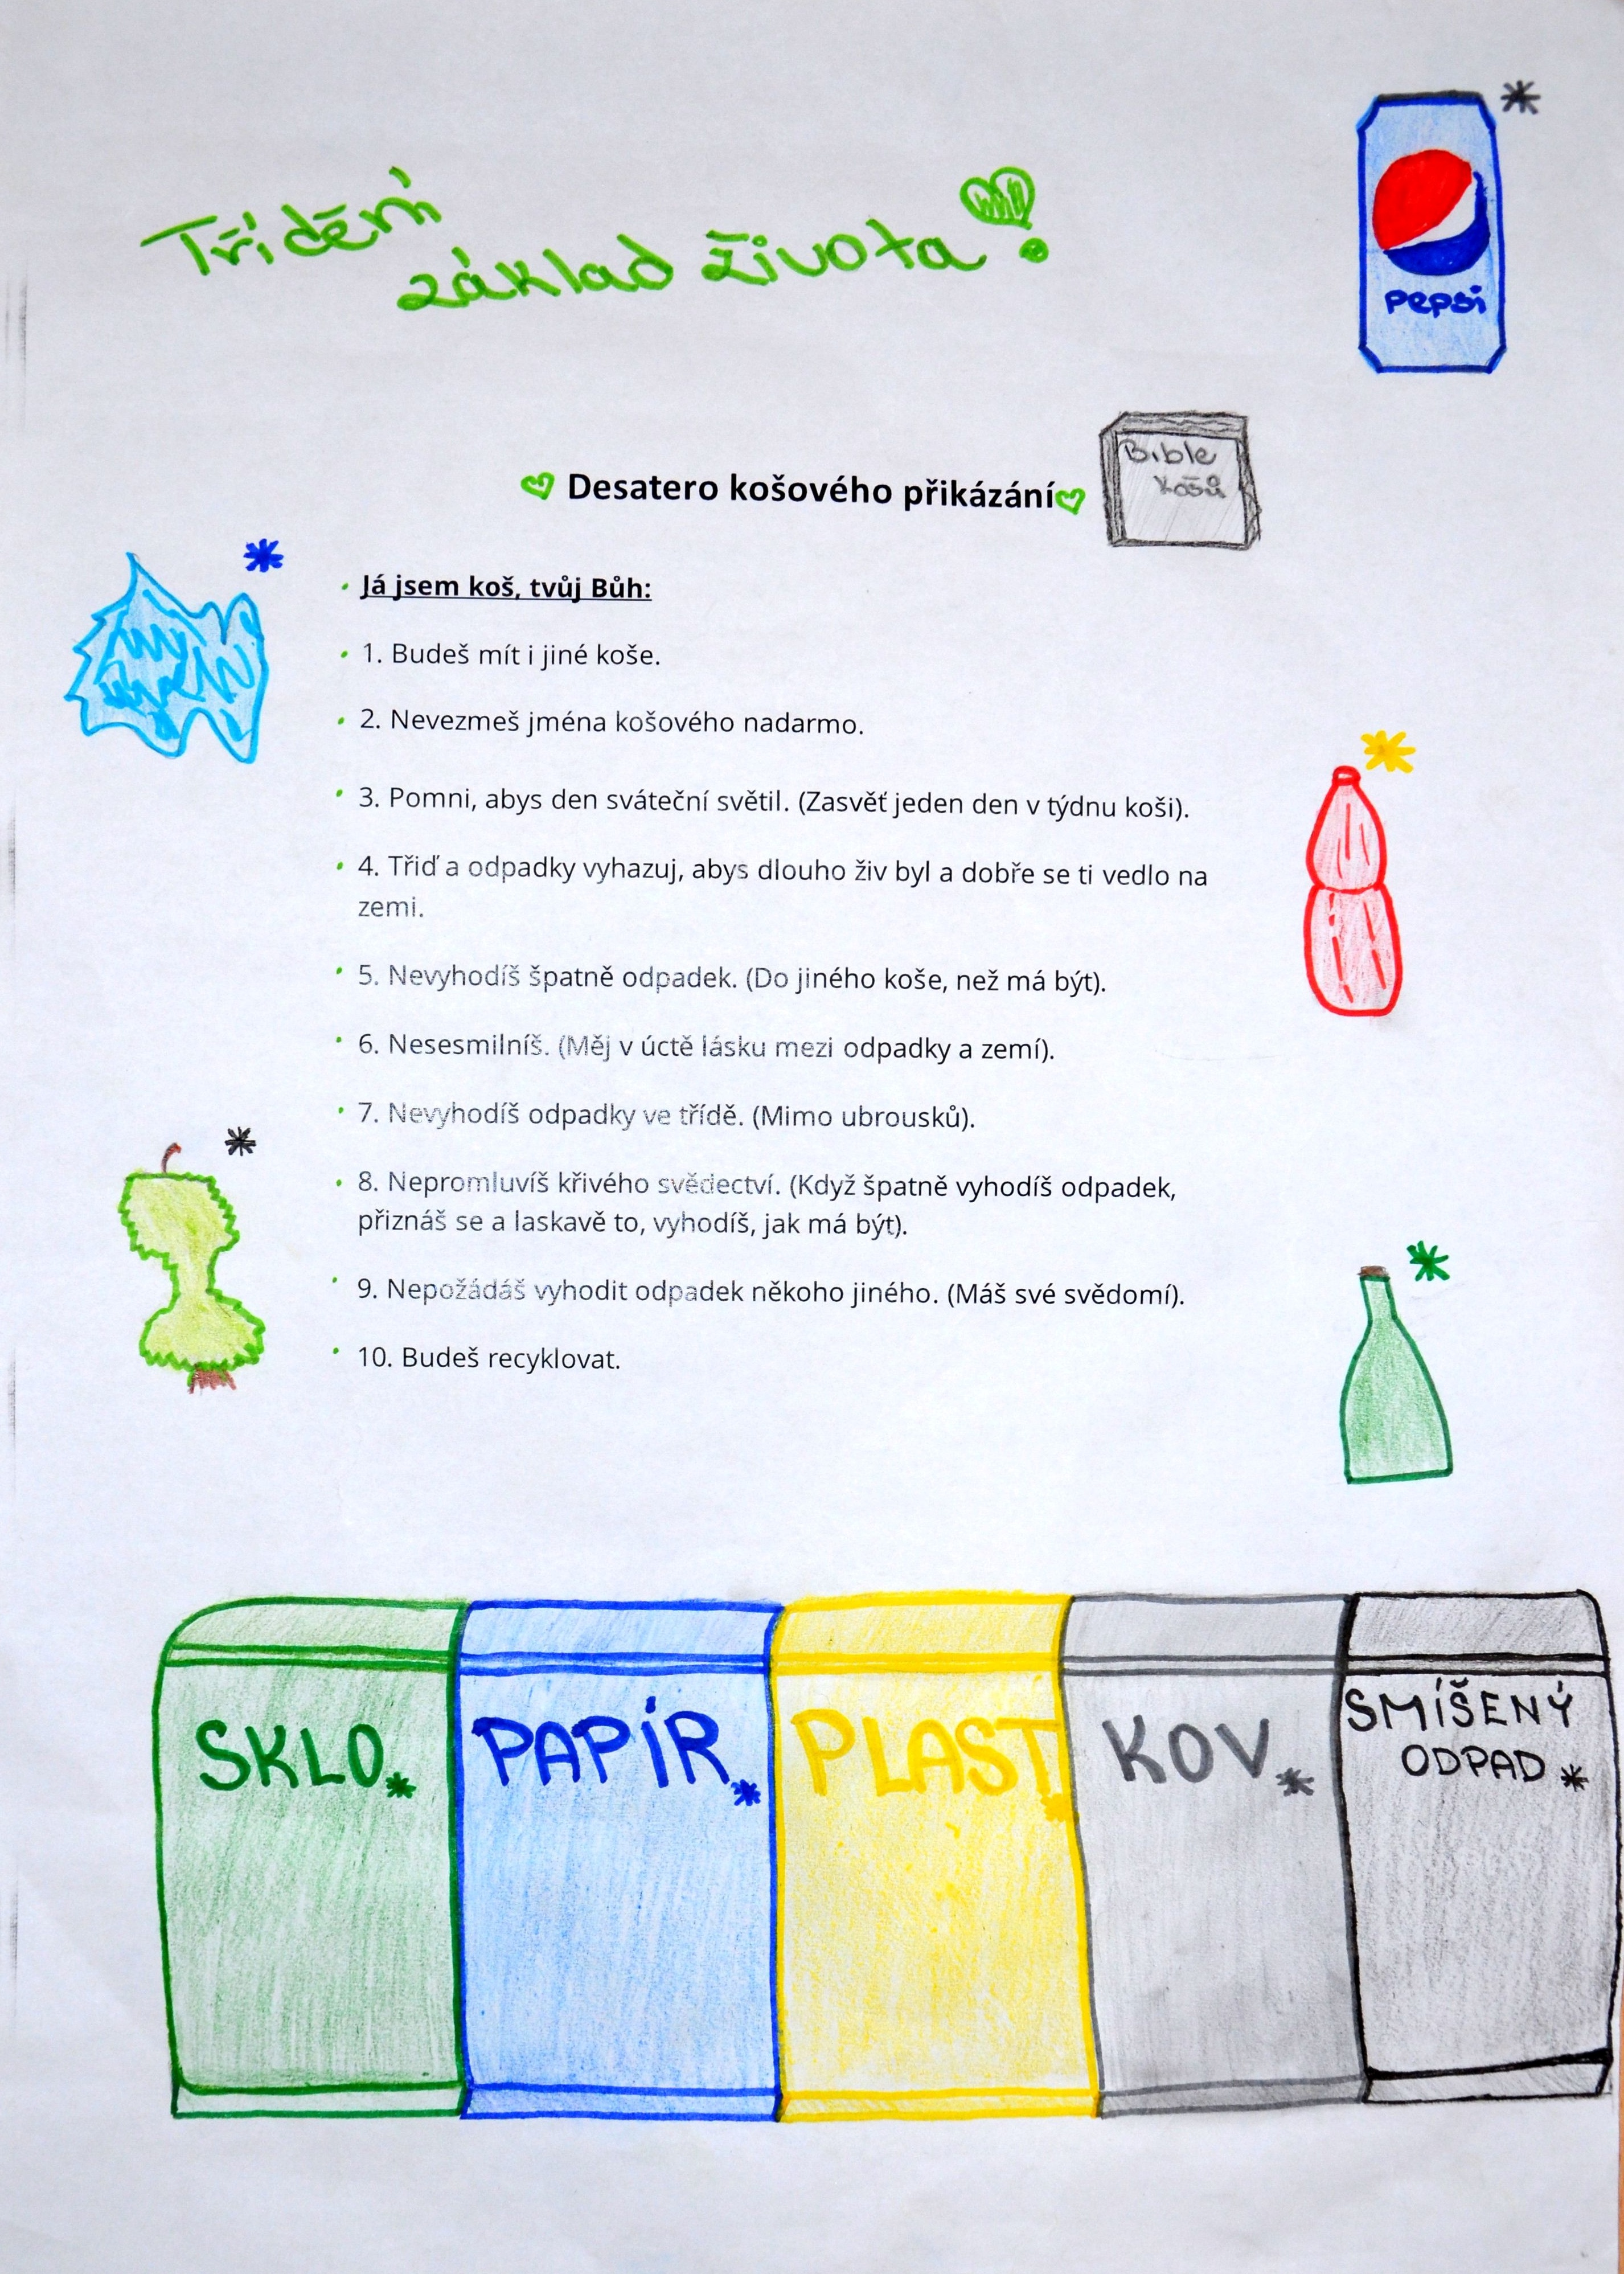 Třídění
základ života!
pepsi
Desatero košového přikázání
Bible
košů
Já jsem koš, tvůj Bůh:
1. Budeš mít i jiné koše.
2. Nevezmeš jména košového nadarmo.
3. Pomni, abys den sváteční světil. (Zasvěť jeden den v týdnu koši).
4. Třiď a odpadky vyhazuj, abys dlouho živ byl a dobře se ti vedlo na
zemi.
5. Nevyhodíš špatně odpadek. (Do jiného koše, než má být).
6. Nesesmilníš. (Měj v úctě lásku mezi odpadky a zemí).
7. Nevyhodíš odpadky ve třídě. (Mimo ubrousků).
8. Nepromluvíš křivého svědectví. (Když špatně vyhodíš odpadek,
přiznáš se a laskavě to, vyhodíš, jak má být).
9. Nepožádáš vyhodit odpadek někoho jiného. (Máš své svědomí).
10. Budeš recyklovat.
SKLO*
PAPÍR*
PLAST*
KOV*
SMÍŠENÝ
ODPAD*